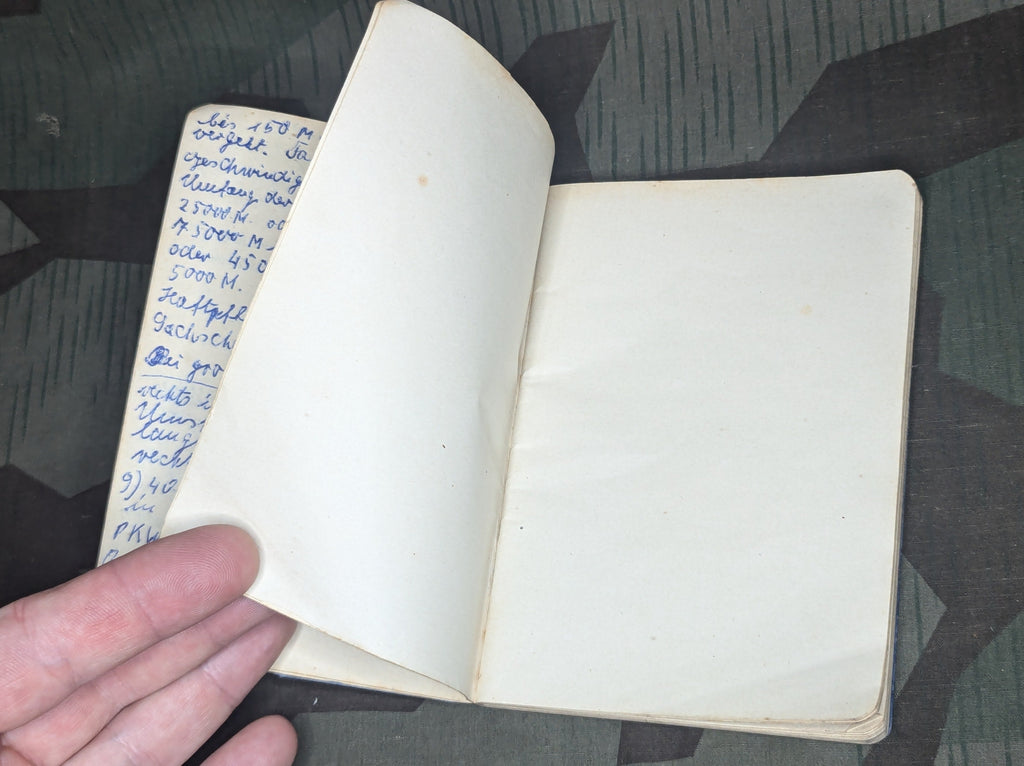 bis 150 M
vergeht. Ta
geschwindig
Umfang der
25000 M. od
75000 M.
oder 450
5000 M.
Haftpfl
Sachsch
Bei gro
rechts i
Ums
lang
recht
9) 40
in
PKW